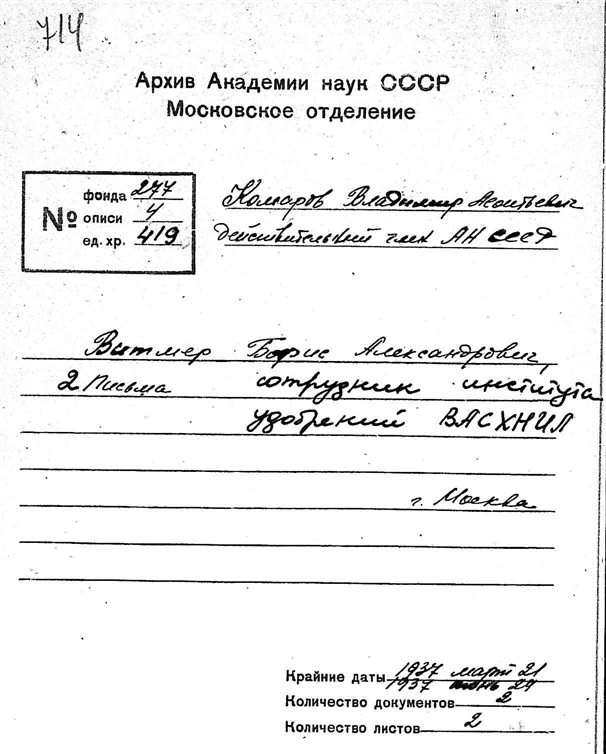 714
Архив Академии наук СССР
Московское отделение
№ фонда 277
описи 4
ед. хр. 419
Комаров Владимир Леонтьевич
действительный член АН СССР
Витмер Борис Александрович,
2 письма сотрудник института
удобрений ВАСХНИЛ
г. Москва
Крайние даты 1937 март 21
1937 июнь 29
Количество документов 2
Количество листов 2